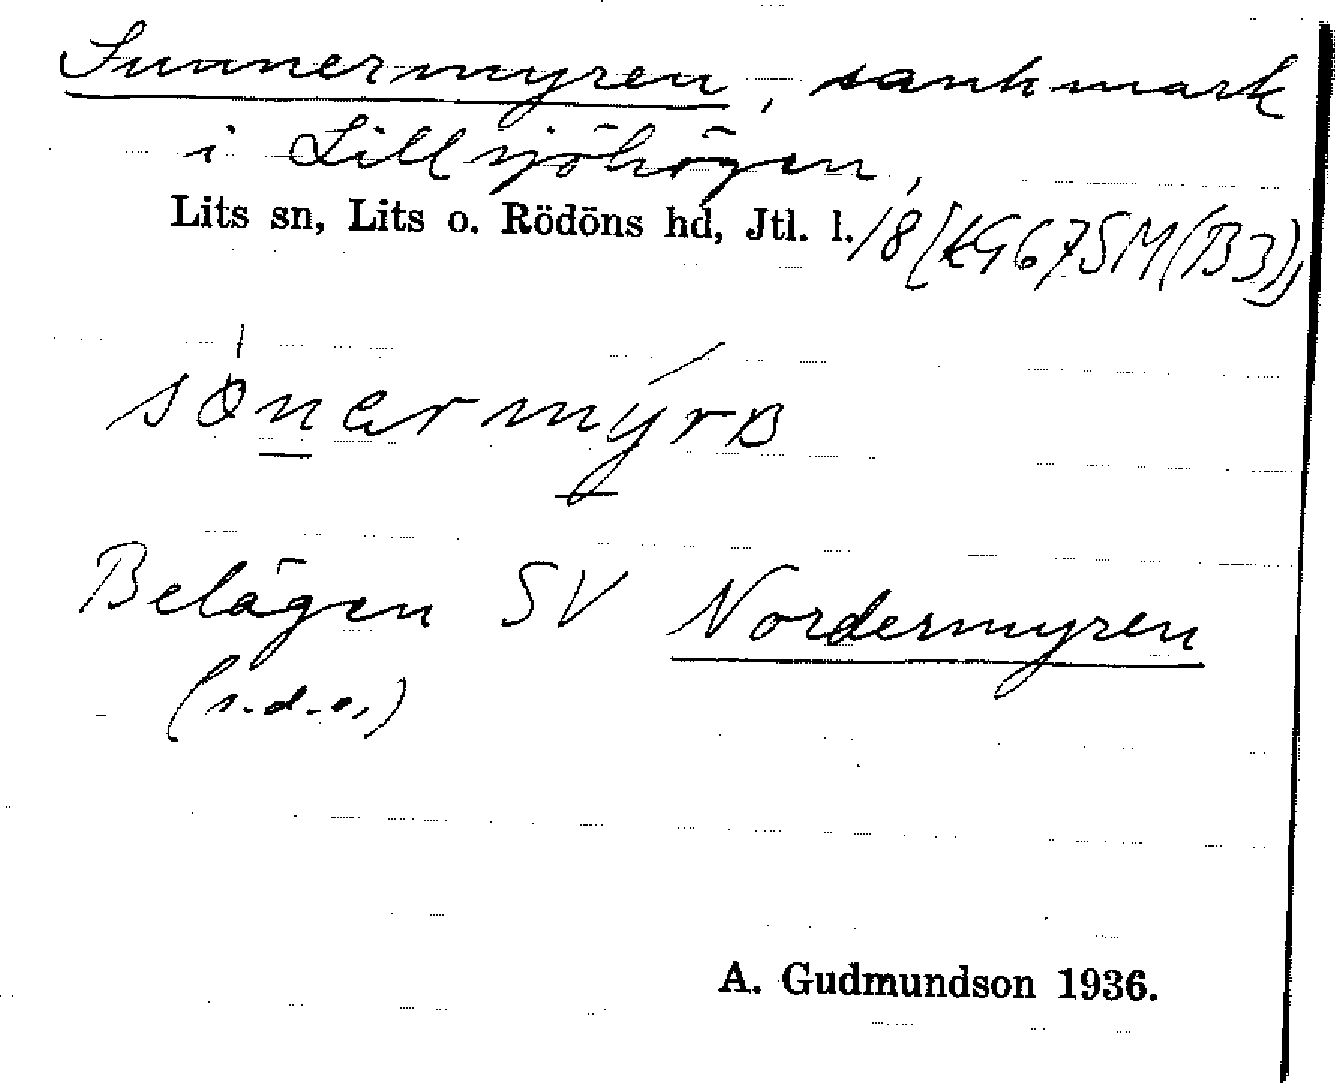 Sunnermyren, sankmark
i Lillsjöhögen,
Lits sn, Lits o. Rödöns hd, Jtl. l. /8 [KG67SM(B3)],
Belägen SV Nordermyren
(s.d.o.)
A. Gudmundson 1936.